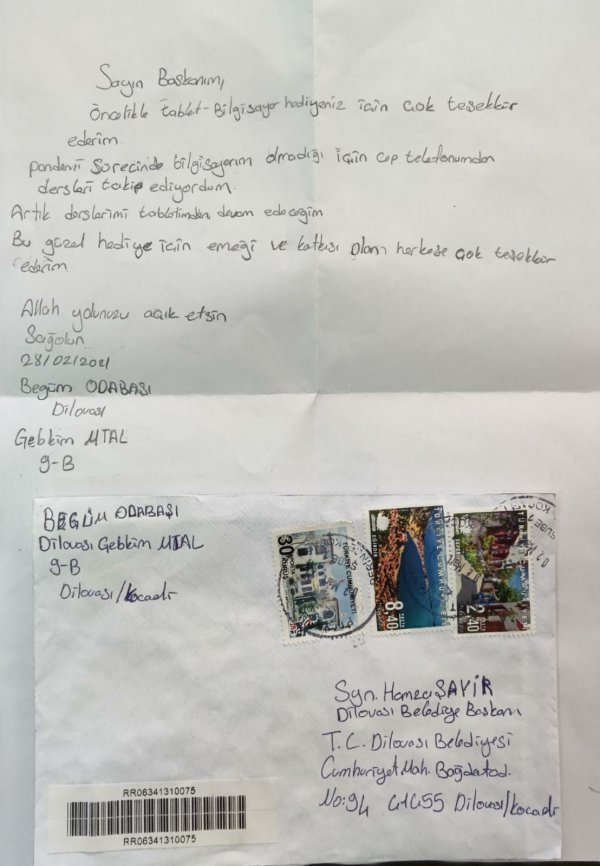 Sayın Başkanım,
Öncelikle tablet-Bilgisayar hediyeniz için çok teşekkür
ederim.
pandemi sürecinde bilgisayarım olmadığı için cep telefonumdan
dersleri takip ediyordum.
Artık derslerimi tabletimden devam edeceğim
Bu güzel hediye için emeği ve katkısı olan herkese çok teşekkür
ederim
Allah yolunuzu açık etsin
Sağolun
28/02/2021
Begüm ODABAŞI
Dilovası
Gebkim MTAL
9-B
BEGÜM ODABAŞI
Dilovası Gebkim MTAL
9-B
Dilovası/Kocaeli
30
TÜRKİYE CUMHURİYETİ
8.40
TÜRKİYE CUMHURİYETİ
2.40
TÜRKİYE CUMHURİYETİ
Syn. Hamza ŞAYİR
Dilovası Belediye Başkanı
T.C. Dilovası Belediyesi
Cumhuriyet Mah. Bağdat cad.
No:94 41455 Dilovası/Kocaeli
RR06341310075
RR06341310075